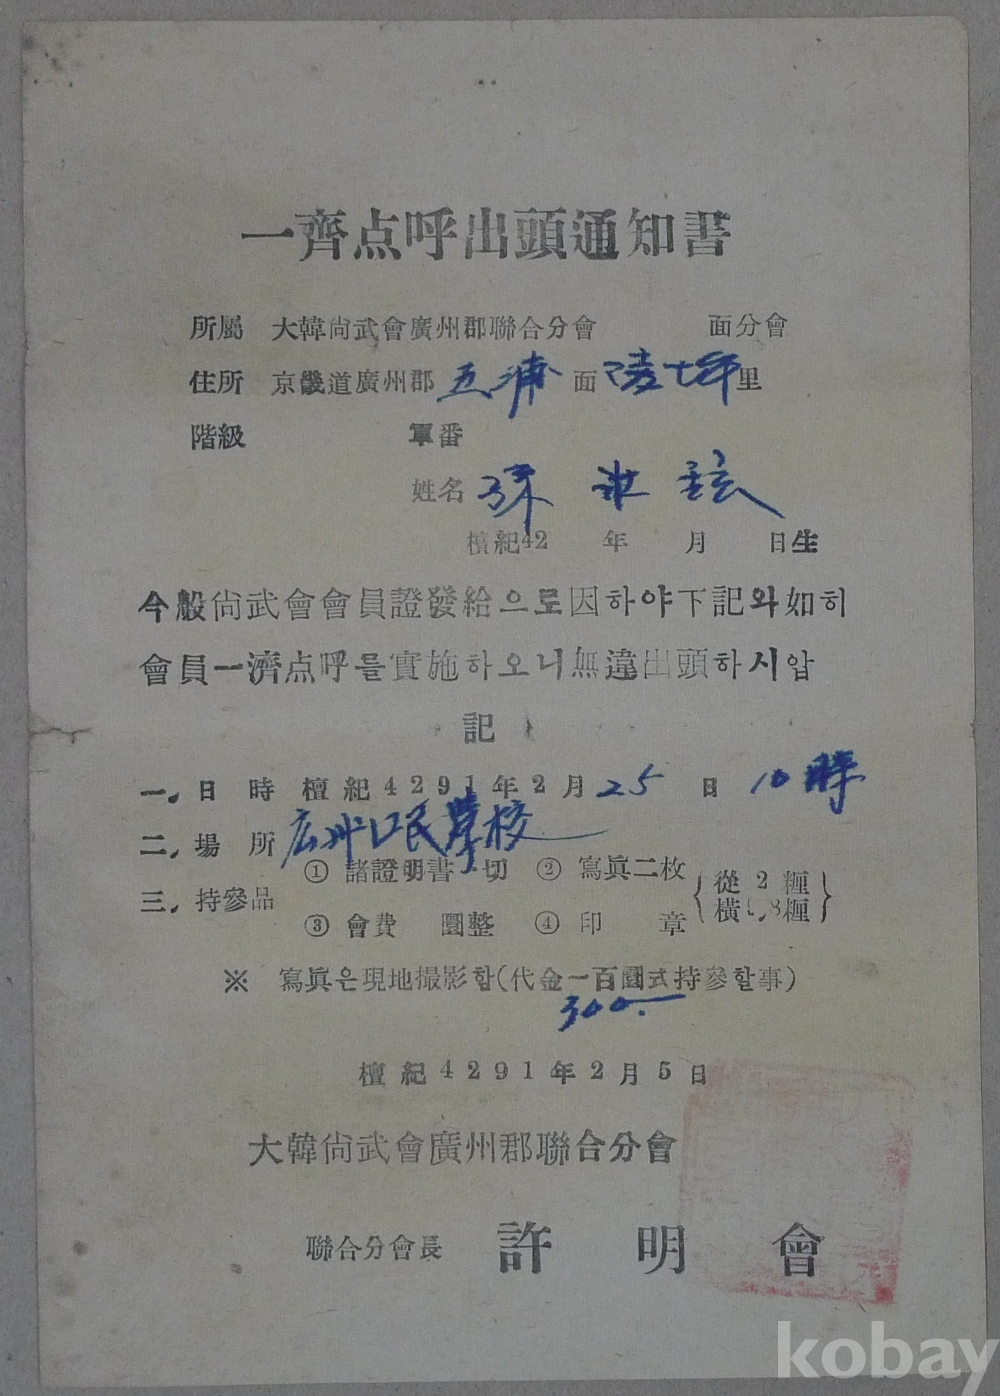 一齊点呼出頭通知書
所屬 大韓尙武會廣州郡聯合分會 面分會
住所 京畿道廣州郡 五浦 面 陵坪 里
階級 軍番
姓名 孫
檀紀42 年 月 日生
今般尙武會會員證發給으로因하야下記와如히
會員一濟点呼를實施하오니無違出頭하시압
記
一. 日時 檀紀4291年2月25日 10時
二. 場所 広州國民學校
三. 持參品 ① 諸證明書一切 ② 寫眞二枚 {從 2 糎 橫1.8糎}
③ 會費 圜整 ④ 印章
※ 寫眞은現地撮影함(代金一百圜式持參할事)
300.-
檀紀4291年2月5日
大韓尙武會廣州郡聯合分會
聯合分會長 許明會
kobay